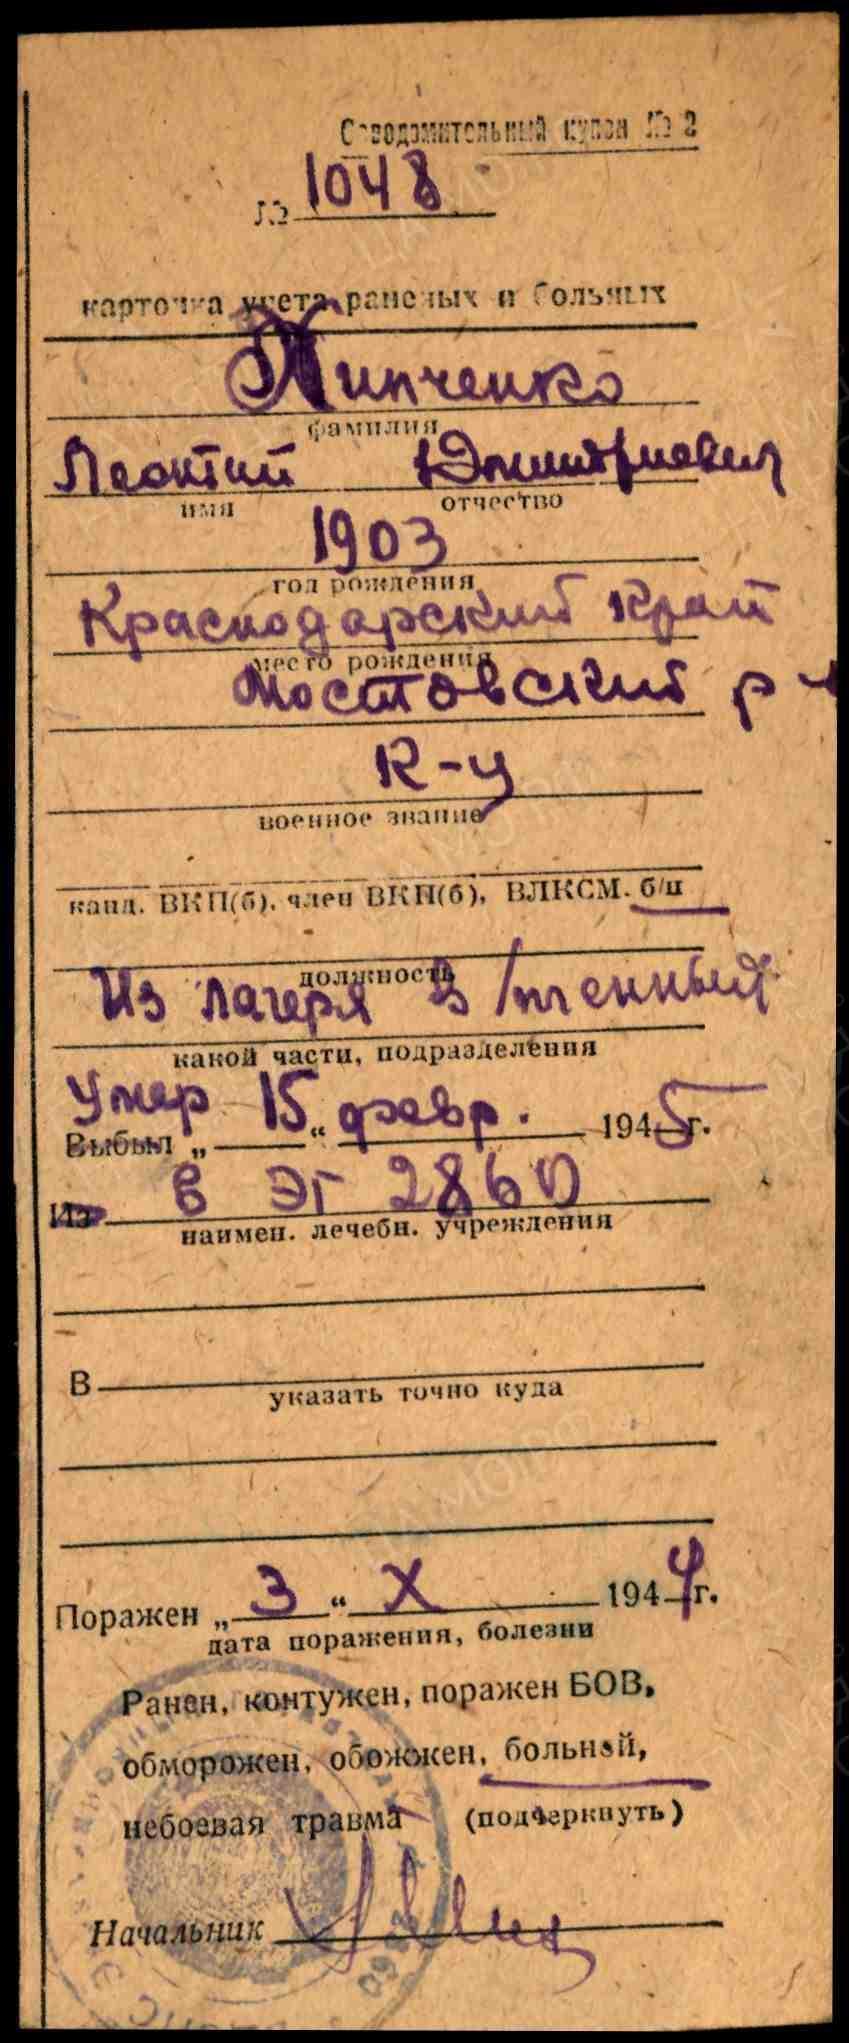 Осведомительный купон № 2
№ 1048
карточка учета раненых и больных
Хипченко
фамилия
Леонтий Дмитриевич
имя отчество
1903
год рождения
Краснодарский край
место рождения
Мостовский р-н
К-ц
военное звание
канд. ВКП(б), член ВКП(б), ВЛКСМ. б/п
должность
Из лагеря в/пленный
какой части, подразделения
Умер 15 февр.
Выбыл „ “ 1945 г.
Из в ЭГ 2860
наимен. лечебн. учреждения
В
указать точно куда
Поражен „ 3 “ X 1944 г.
дата поражения, болезни
Ранен, контужен, поражен БОВ,
обморожен, обожжен, больной,
небоевая травма (подчеркнуть)
Начальник